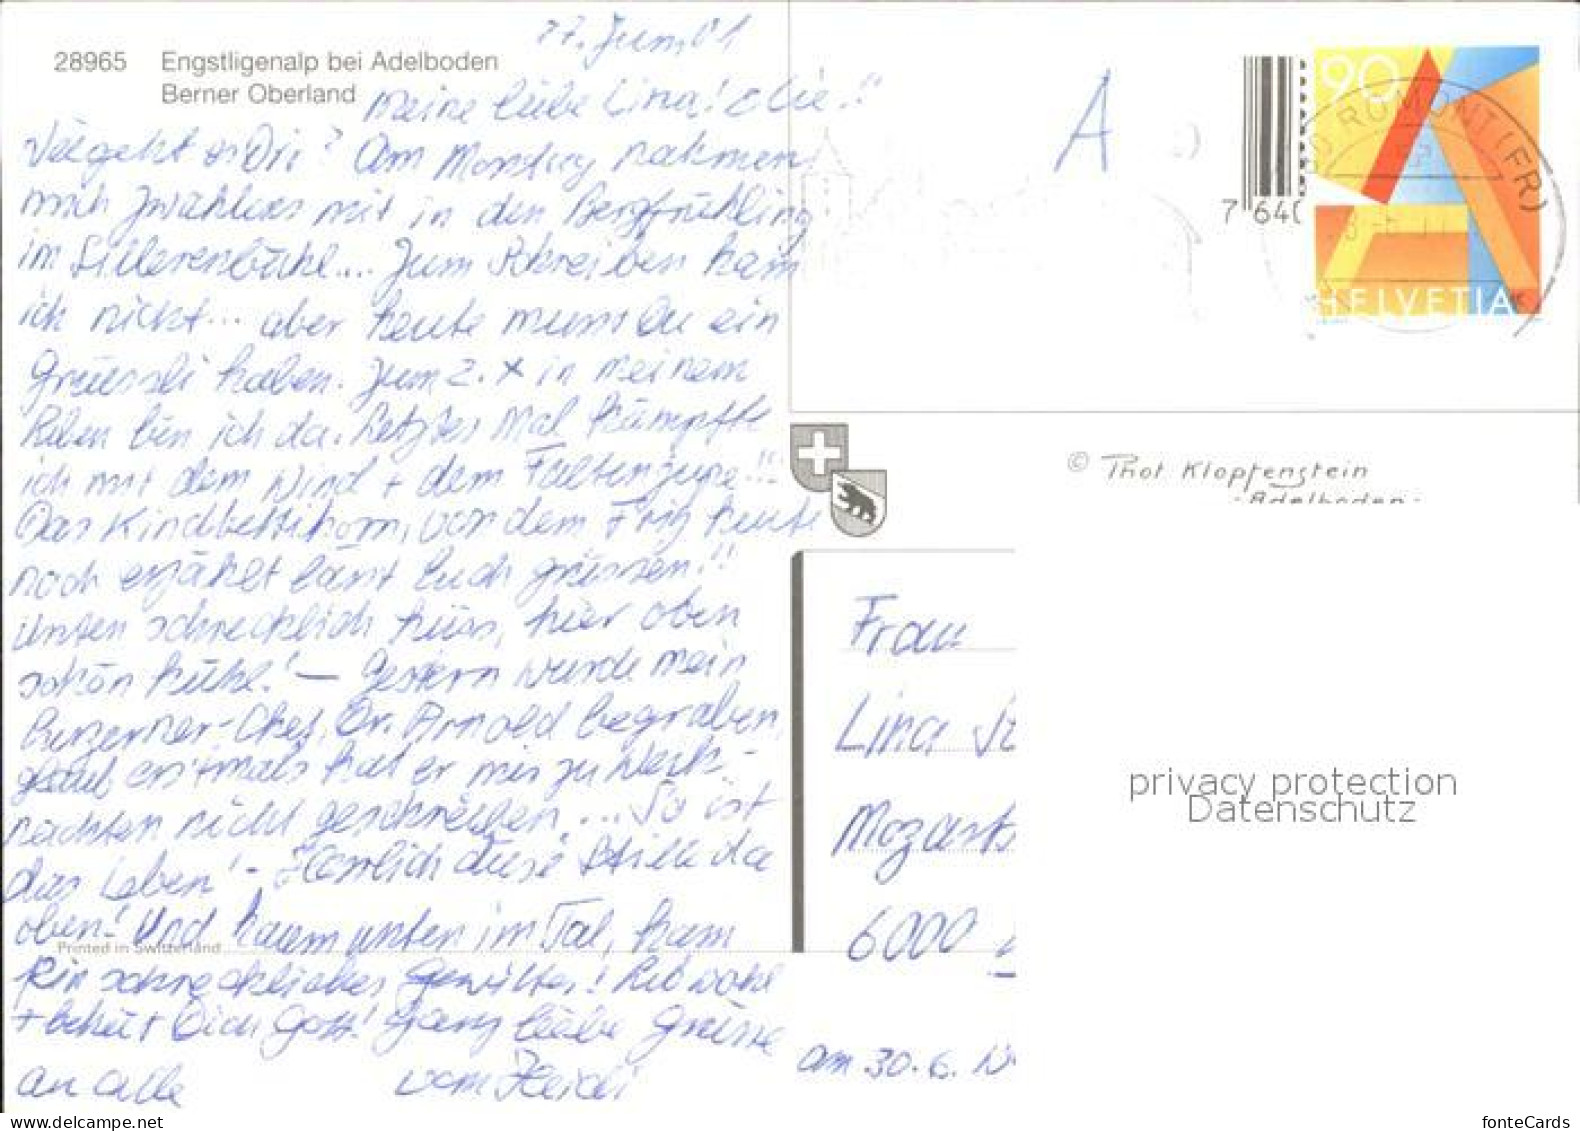 28965 Engstligenalp bei Adelboden
Berner Oberland
Juni 01
Meine liebe Lina!
Wie geht es Dir? Am Monstag nahmen
mich zwahlens mit in den Bergfrühling
im Sillerenbühl.... Zum Schreiben kam
ich nicht... aber heute muns Du ein
Grüessli haben. Zum 2. x in meinem
Leben bin ich da. Letztes Mal kämpfte
ich mit dem Wind + dem Faltenjupe!!..
Das Kindbettihorn, von dem Fritz heute
noch erzählt länst Euch grüssen!!
Unten schrecklich heiss, hier oben
schön kühl! — Gestern wurde mein
Luzerner-Chef, Dr. Arnold begraben,
glaub erstmals hat er mir zu Weih-
nachten nicht geschrieben.... So ist
das Leben! - Herrlich diese Stille da
oben! Und kaum unten im Tal, kam
Printed in Switzerland
Ein schreckliches Gewitter! Leb wohl
+ behüt Dich Gott! Ganz liebe Grüsse
an alle vom Heidi
A
7 640
90
HELVETIA
ROMONT (FR)
© Thot Klopfenstein
- Adelboden -
Frau
Lina
Mozarts
6000
am 30.6.
privacy protection
Datenschutz
www.delcampe.net
fonteCards